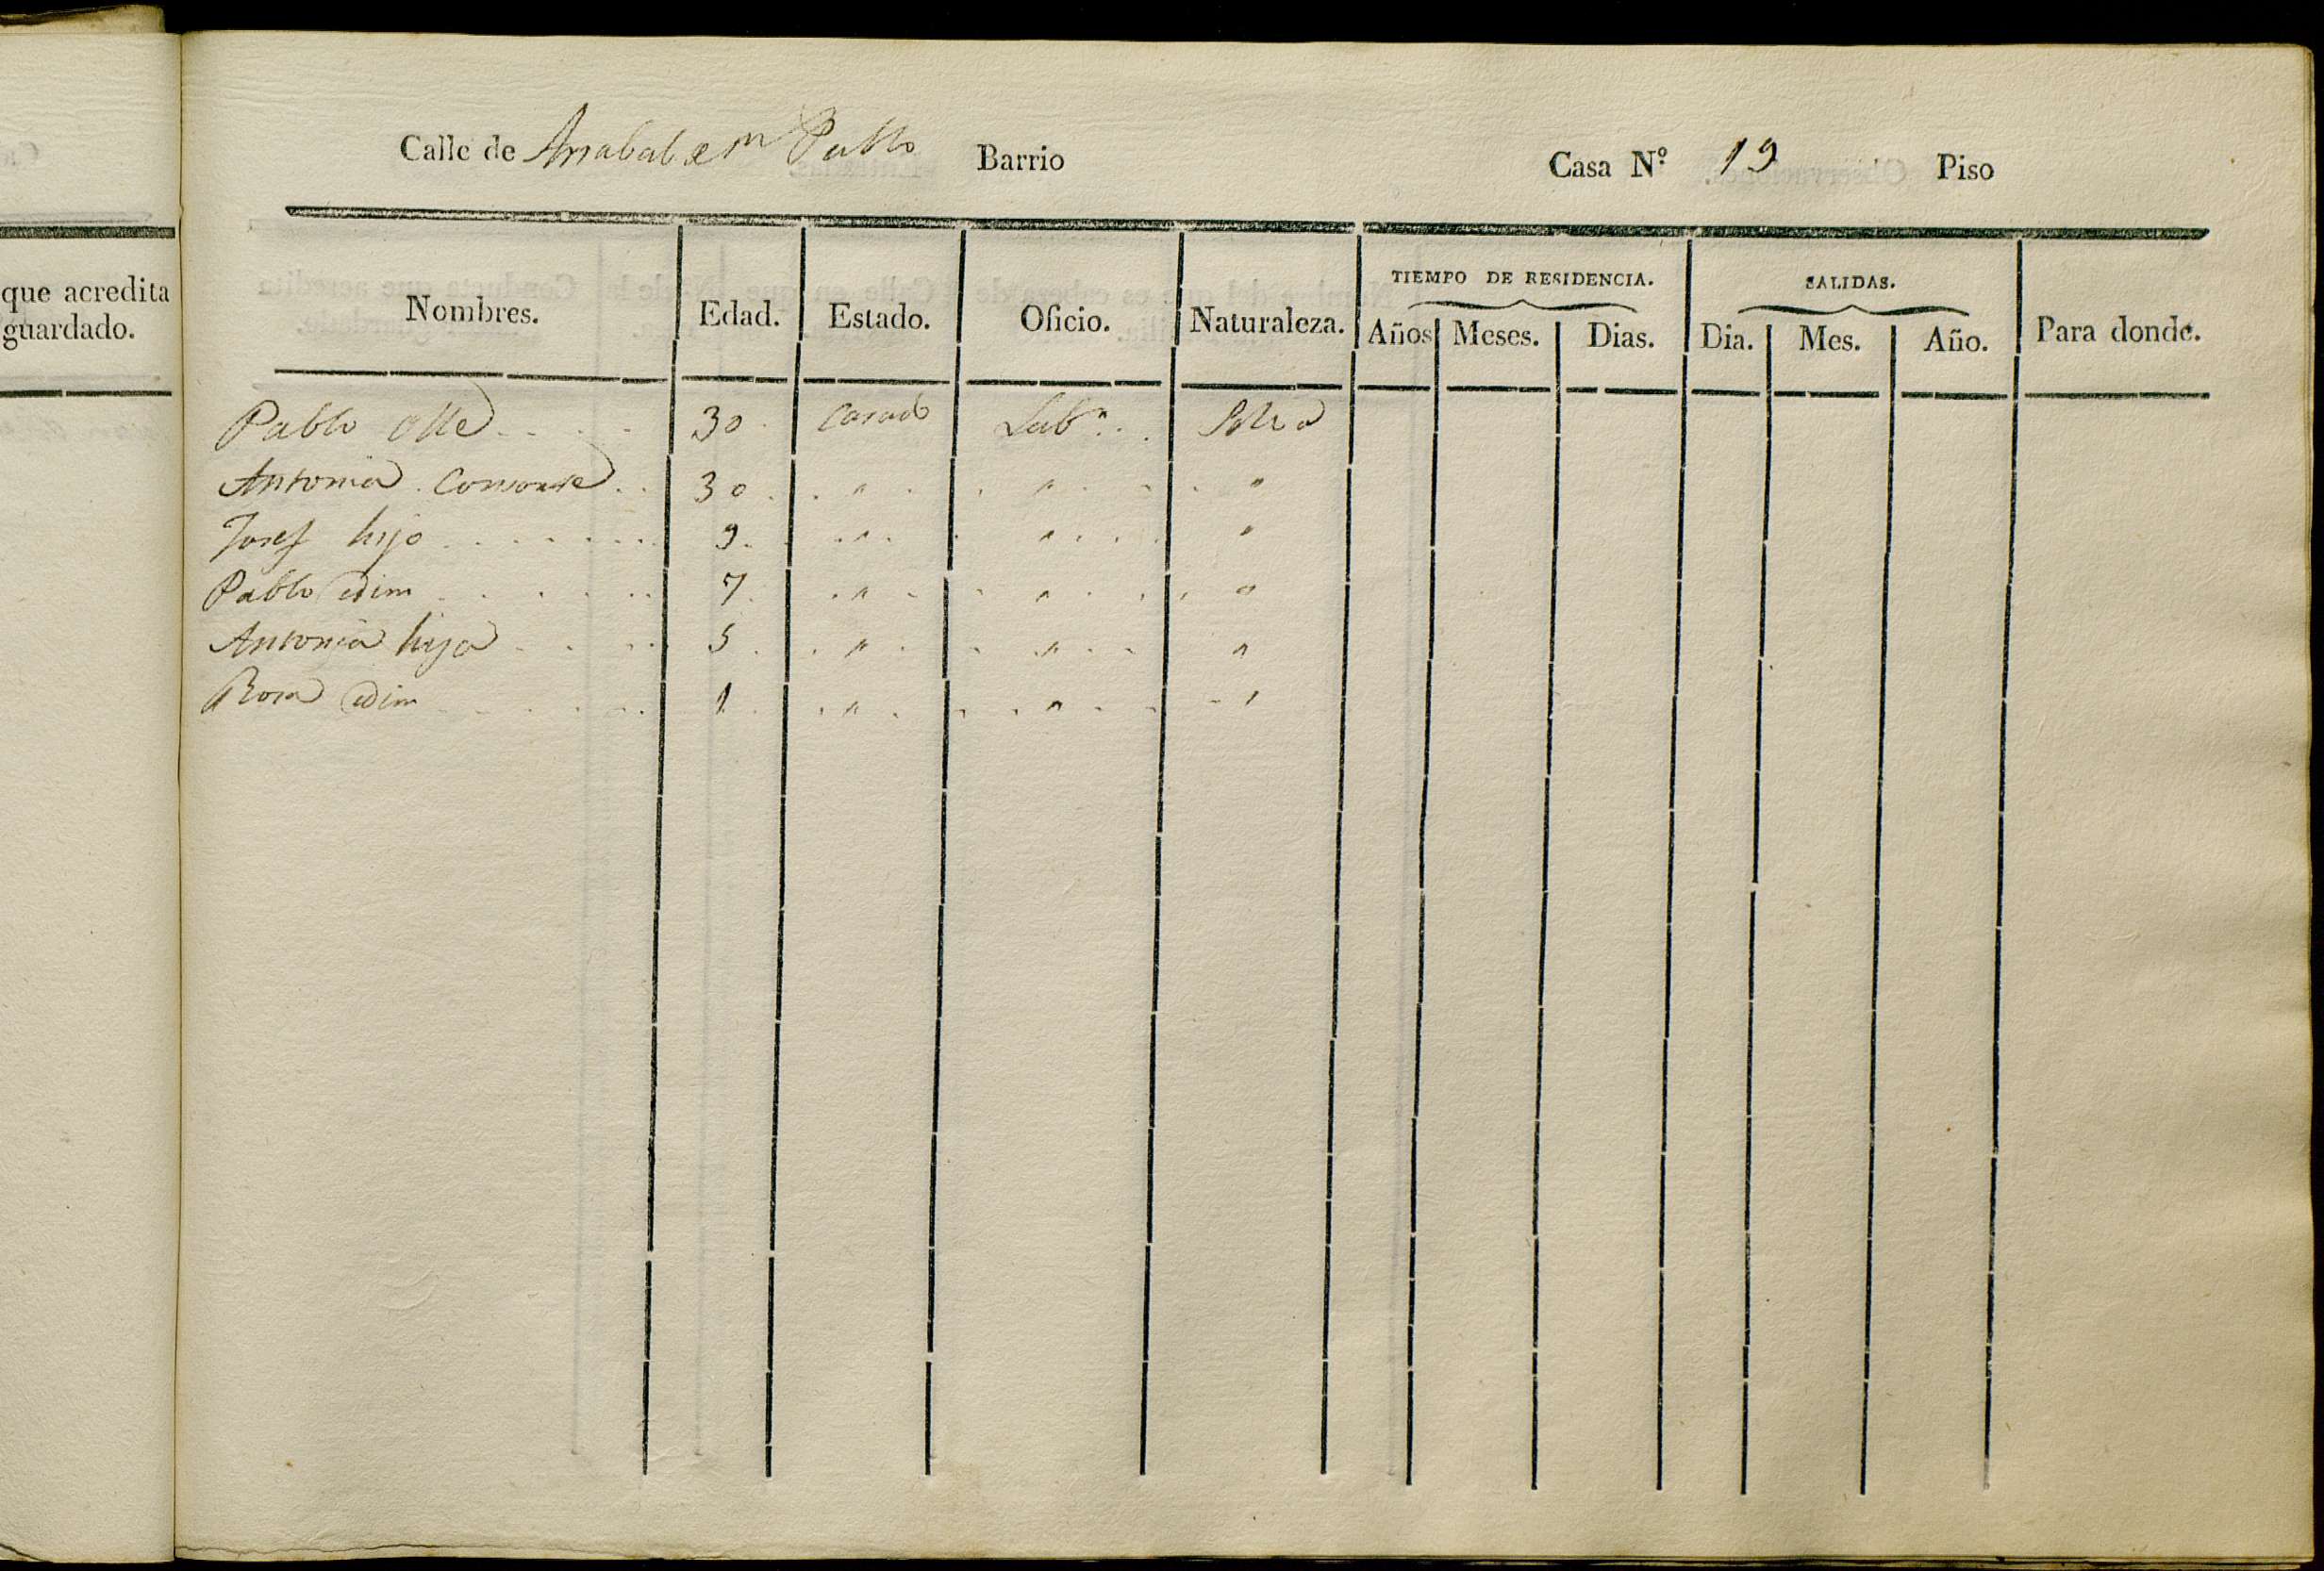 Calle de Arrabal Sn Pablo Barrio Casa N.º 19 Piso
que acredita
guardado.
Nombres. Edad. Estado. Oficio. Naturaleza. TIEMPO DE RESIDENCIA. SALIDAS. Para donde.
Años Meses. Dias. Dia. Mes. Año.
Pablo Olle 30 Casado Labr.
Antonia Consorte 30 " " "
Josef hijo 9 " " "
Pablo idim 7 " " "
Antonia hija 5 " " "
Rosa idim 1 " " "